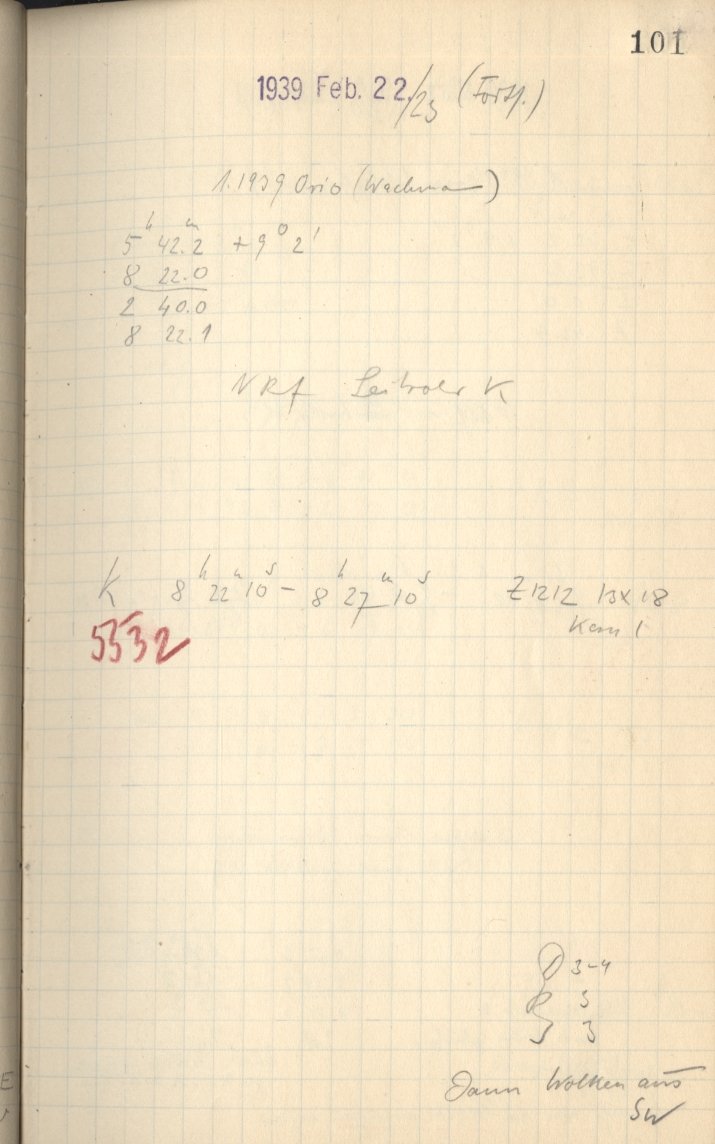 101
1939 Feb. 22./23 (Forts.)
1.1939 Orio (Wachmann)
5h 42.m2 +9° 2'
8 22.0
2 40.0
8 22.1
K
K 8h 22m 10s - 8h 27m 10s Z 1212 13x18
Kern 1
5532
3-4
3
Dann Wolken aus
SW